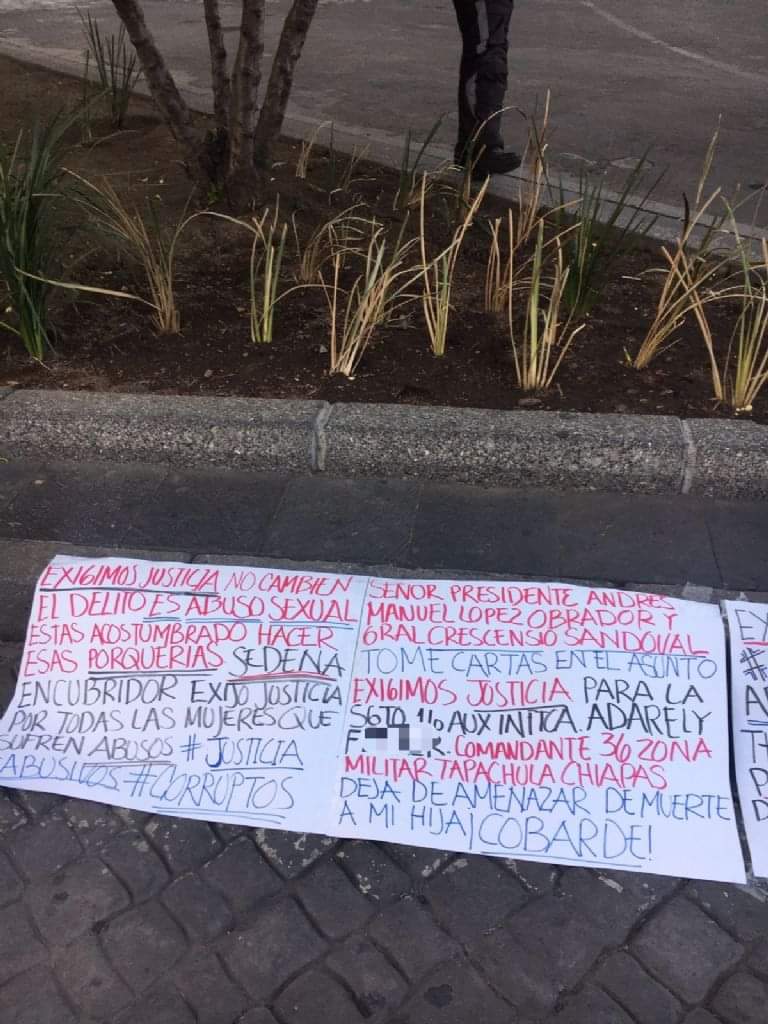 EXIGIMOS JUSTICIA NO CAMBIEN
EL DELITO ES ABUSO SEXUAL
ESTAS ACOSTUMBRADO HACER
ESAS PORQUERIAS SEDENA
ENCUBRIDOR EXIJO JUSTICIA
POR TODAS LAS MUJERES QUE
SUFREN ABUSOS # JUSTICIA
ABUSIVOS #CORRUPTOS
SEÑOR PRESIDENTE ANDRES
MANUEL LOPEZ OBRADOR Y
GRAL CRESCENSIO SANDOVAL
TOME CARTAS EN EL ASUNTO
EXIGIMOS JUSTICIA PARA LA
SGTO AUX ADARELY
F. R. COMANDANTE 36 ZONA
MILITAR TAPACHULA CHIAPAS
DEJA DE AMENAZAR DE MUERTE
A MI HIJA ¡COBARDE!